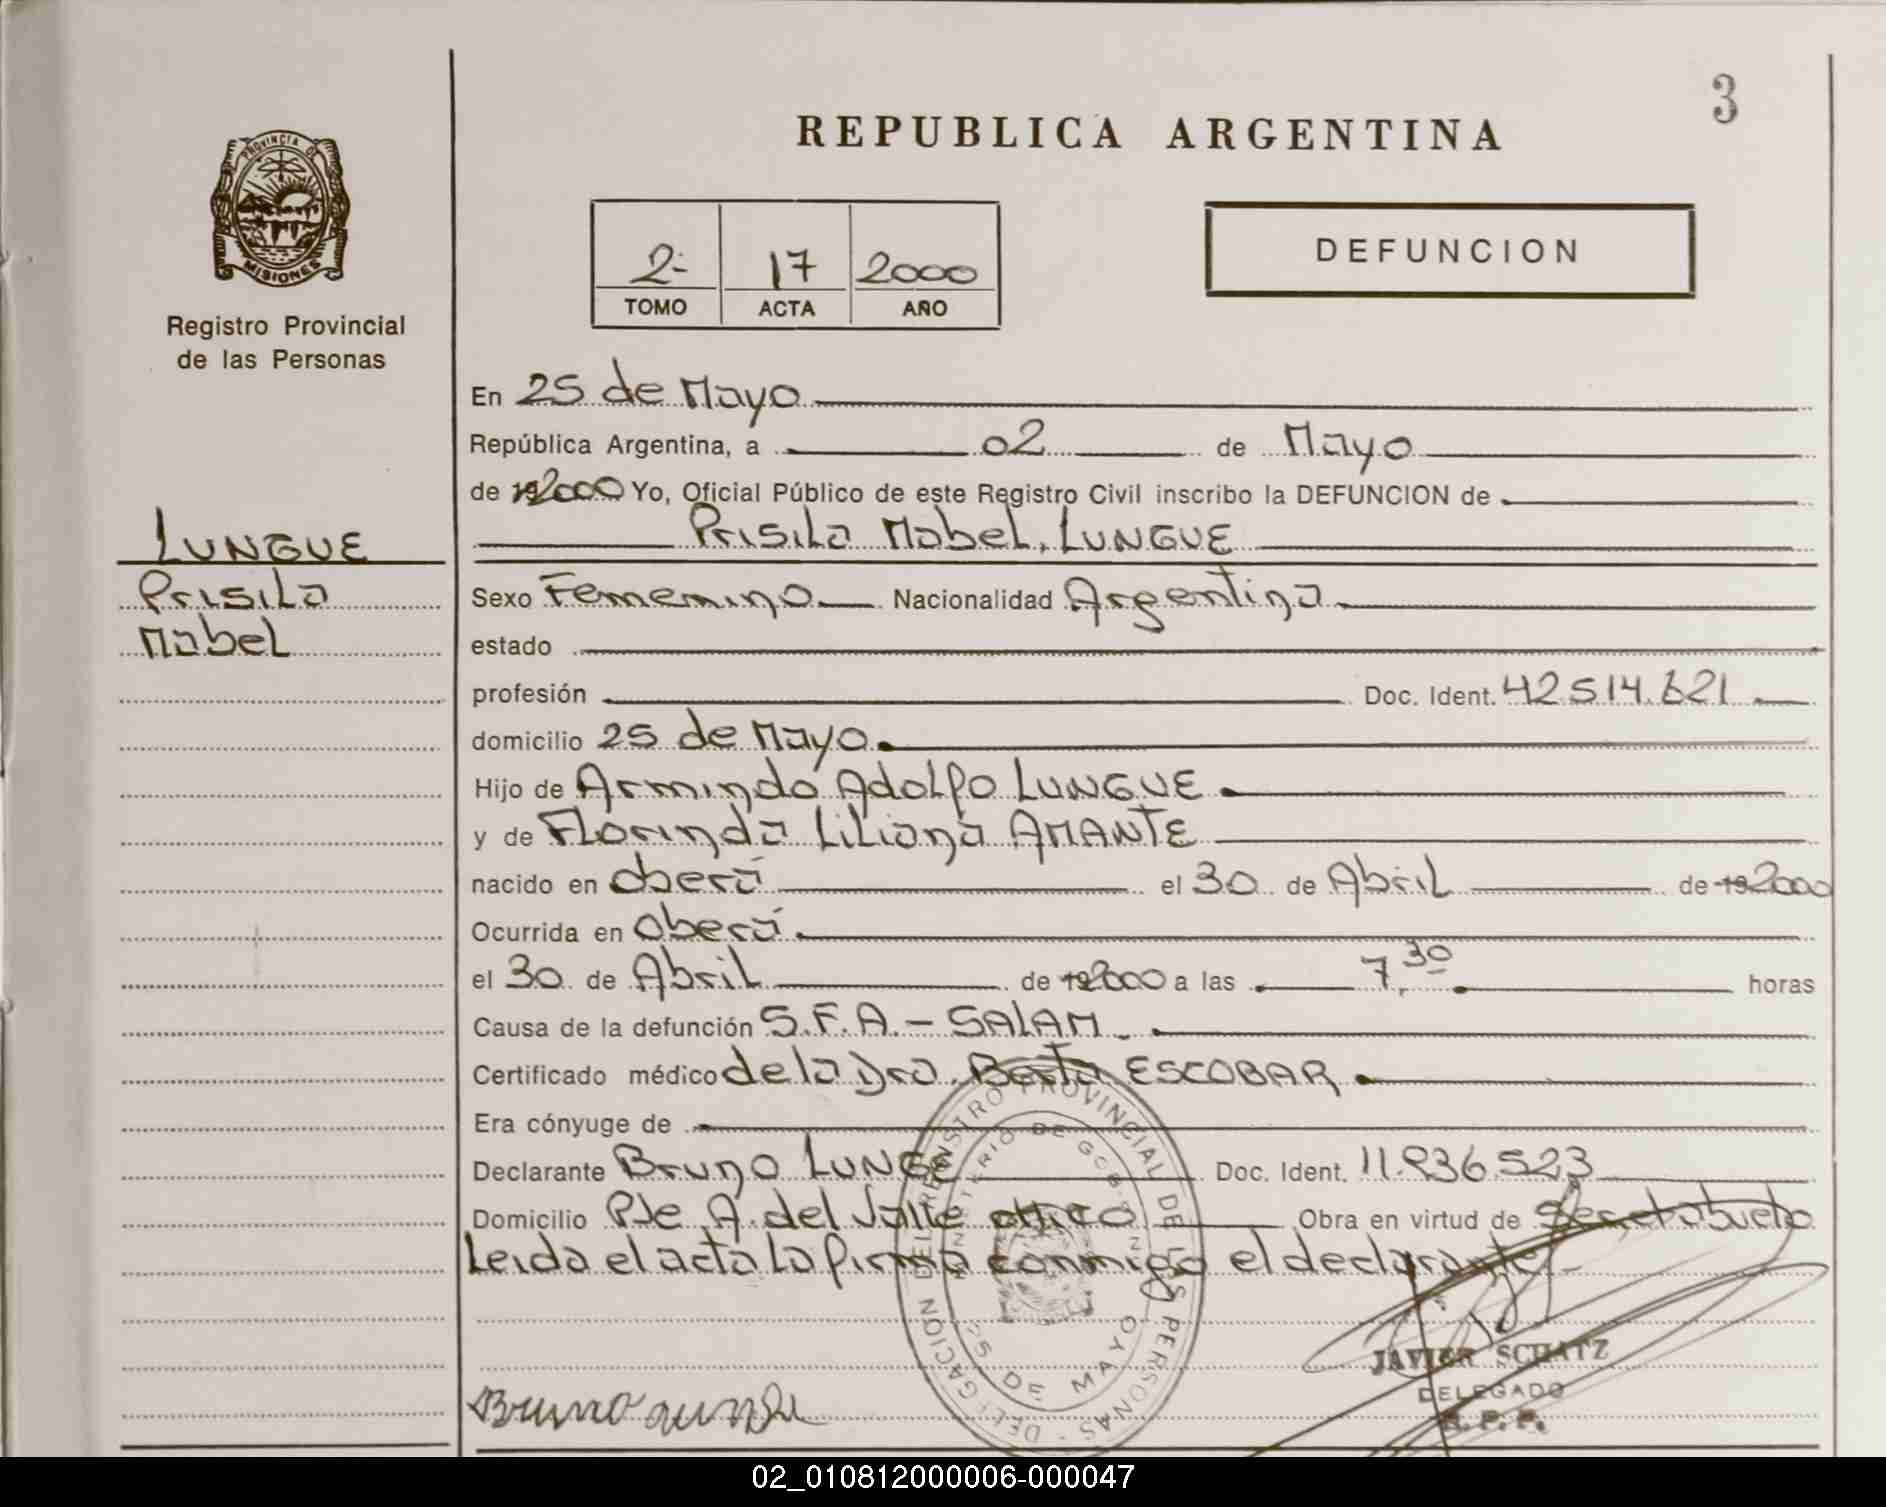 3
REPUBLICA ARGENTINA
PROVINCIA DE
MISIONES
Registro Provincial
de las Personas
2- 17 2000
TOMO ACTA AÑO
DEFUNCION
En 25 de Mayo
República Argentina, a 02 de Mayo
de 192000 Yo, Oficial Público de este Registro Civil inscribo la DEFUNCION de
Prisila Mabel, LUNGUE
LUNGUE
Prisila
Mabel
Sexo Femenino Nacionalidad Argentina
estado
profesión Doc. Ident. 42514.621
domicilio 25 de Mayo
Hijo de Armindo Adolfo LUNGUE
y de Florinda Liliana AMANTE
nacido en Oberá el 30 de Abril de 192000
Ocurrida en Oberá
el 30 de Abril de 192000 a las 7,30 horas
Causa de la defunción S.F.A. - SALAM
Certificado médico de la Dra. Berta ESCOBAR
Era cónyuge de
Declarante Bruno LUNGE Doc. Ident. 11.936.523
Domicilio Pje A. del Valle Obra en virtud de Ser el abuelo
Leida el acta la firma conmigo el declarante
DELEGACION DEL REGISTRO PROVINCIAL DE LAS PERSONAS
MINISTERIO DE GOB.
25 DE MAYO
JAVIER SCHATZ
DELEGADO
R. P. P.
Bruno Lunge
02_010812000006-000047